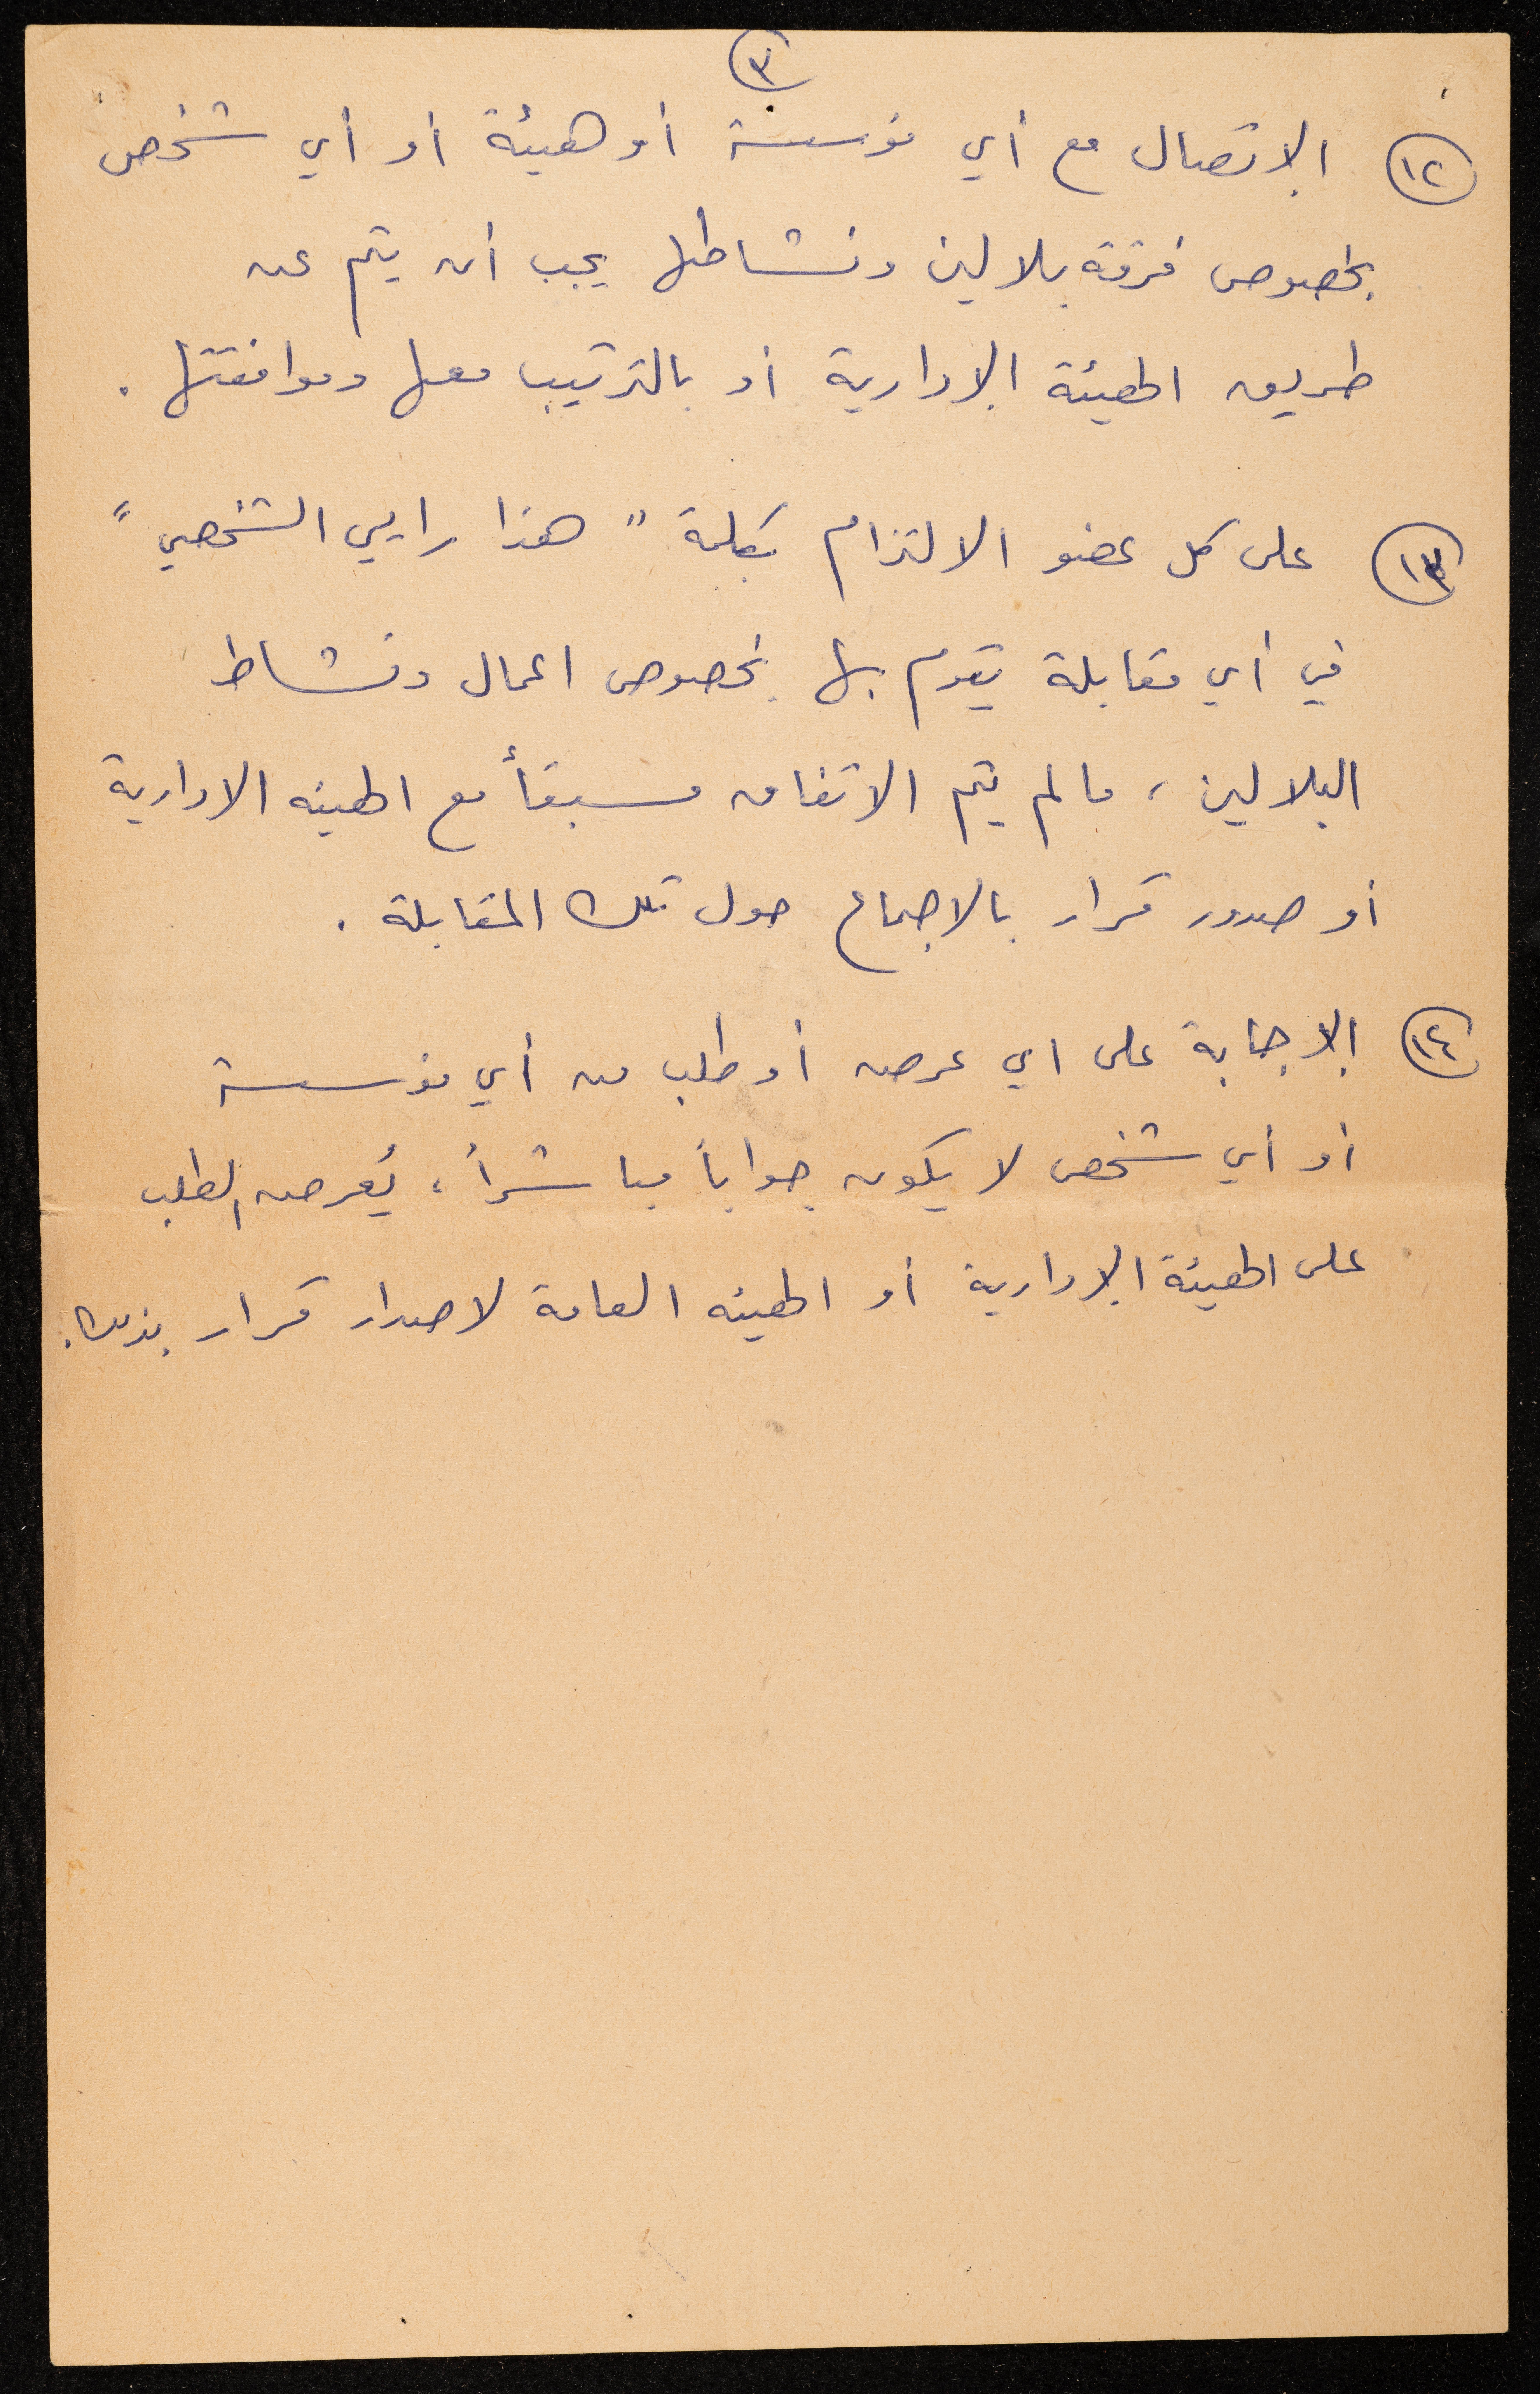 ٣
١٢ الإتصال مع أي مؤسسة أو هيئة أو أي شخص
بخصوص فرقة بلالين ونشاطها يجب أن يتم عن
طريق الهيئة الإدارية أو بالترتيب معها وموافقتها .
١٣ على كل عضو الالتزام بكلمة " هذا رايي الشخصي "
في أي مقابلة يقوم بها بخصوص اعمال ونشاط
البلالين ، مالم يتم الاتفاق مسبقاً مع الهيئه الادارية
أو صدور قرار بالاجماع حول تلك المقابلة .
١٤ الإجابة على اي عرض أو طلب من أي مؤسسة
أو أي شخص لا يكون جواباً مباشراً ، يُعرض الطلب
على الهيئة الإدارية أو الهيئه العامة لاصدار قرار بذلك .